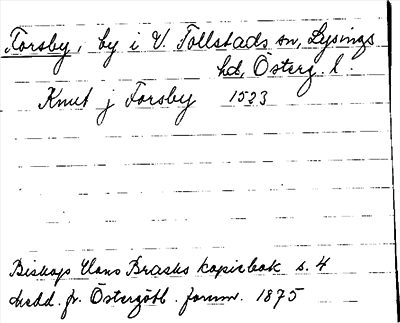 Forsby, by i V. Tollstads sn, Lysings
hd, Österg. l.
Knut j Forsby 1523
Biskops Hans Brasks kopiebok s. 4
Medd. fr. Östergötl. fornm. 1875